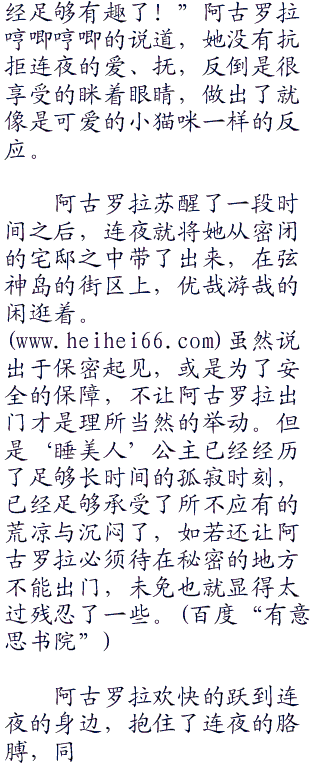 经足够有趣了！”阿古罗拉
哼唧哼唧的说道，她没有抗
拒连夜的爱、抚，反倒是很
享受的眯着眼睛，做出了就
像是可爱的小猫咪一样的反
应。
阿古罗拉苏醒了一段时
间之后，连夜就将她从密闭
的宅邸之中带了出来，在弦
神岛的街区上，优哉游哉的
闲逛着。
(www.heihei66.com)虽然说
出于保密起见，或是为了安
全的保障，不让阿古罗拉出
门才是理所当然的举动。但
是‘睡美人’公主已经经历
了足够长时间的孤寂时刻，
已经足够承受了所不应有的
荒凉与沉闷了，如若还让阿
古罗拉必须待在秘密的地方
不能出门，未免也就显得太
过残忍了一些。(百度“有意
思书院”)
阿古罗拉欢快的跃到连
夜的身边，抱住了连夜的胳
膊，同